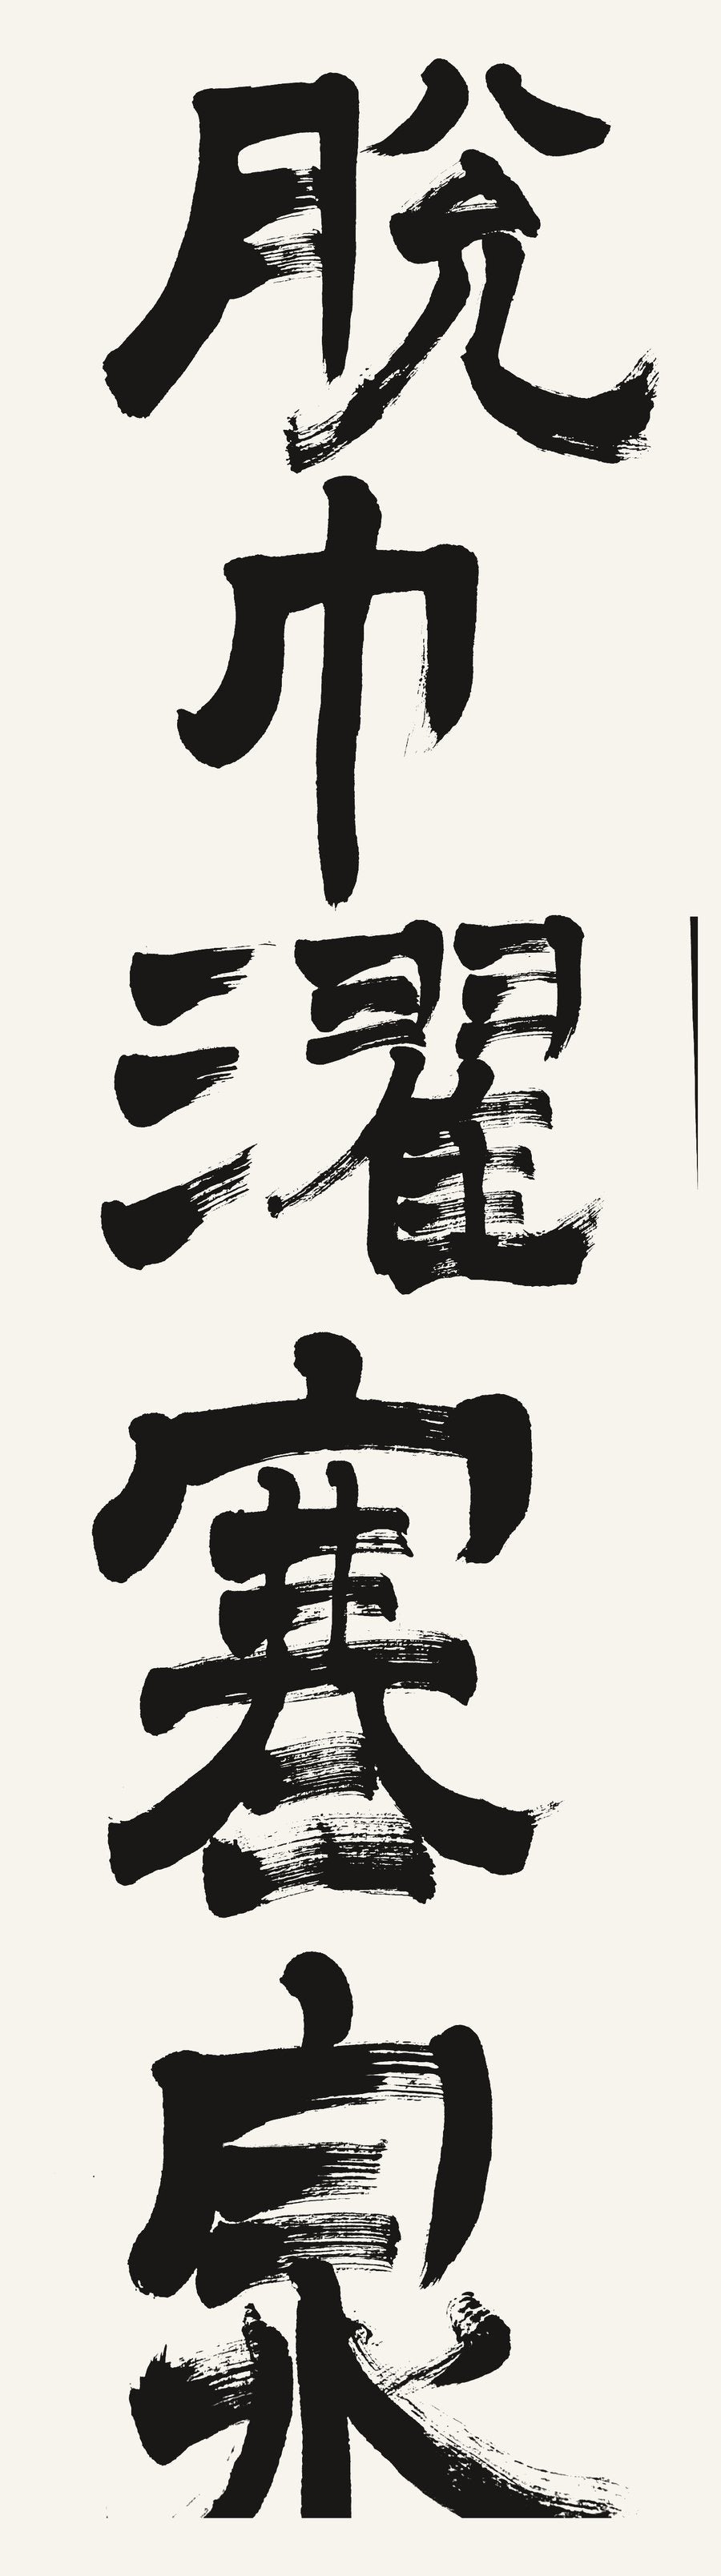 脫巾濯寒泉